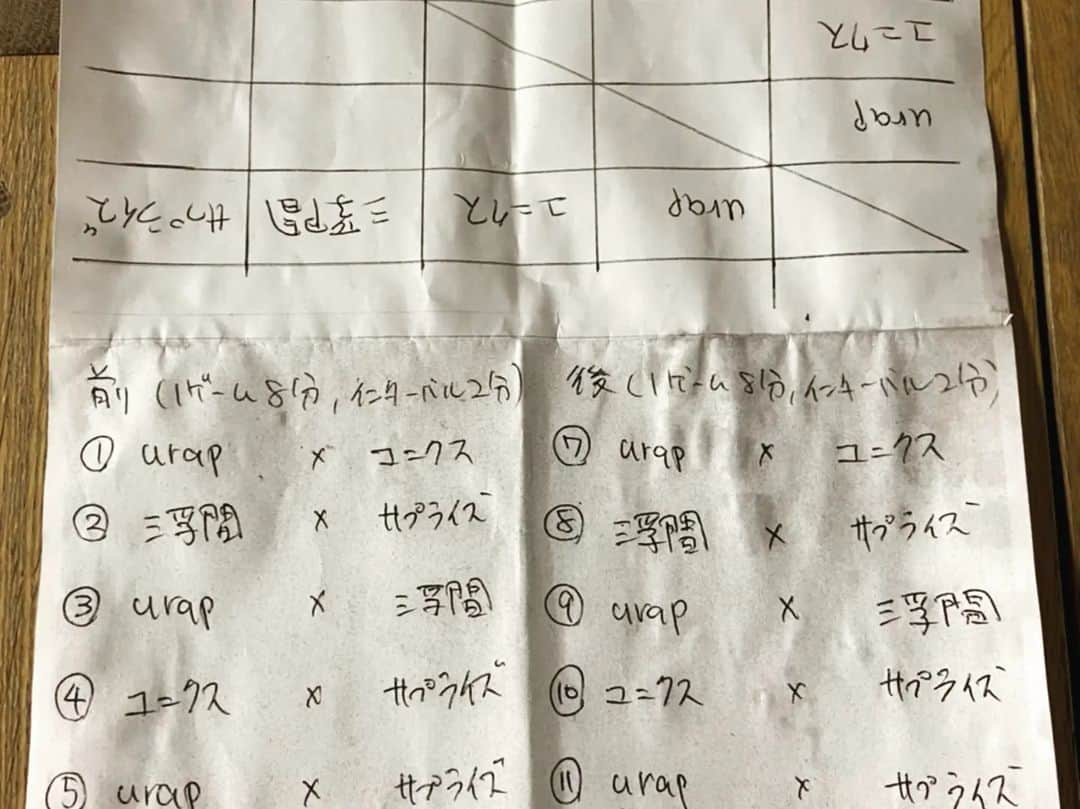 コニクス
urap
サプライズ 三浮間 コニクス urap
前 (1ゲーム8分, インターバル2分)
① urap × コニクス
② 三浮間 × サプライズ
③ urap × 三浮間
④ コニクス × サプライズ
⑤ urap × サプライズ
後 (1ゲーム8分, インターバル2分)
⑦ urap × コニクス
⑧ 三浮間 × サプライズ
⑨ urap × 三浮間
⑩ コニクス × サプライズ
⑪ urap × サプライズ